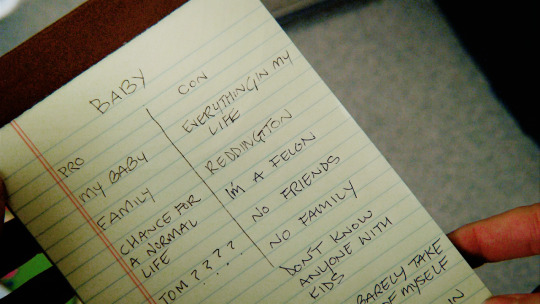 BABY
PRO
MY BABY
FAMILY
CHANCE FOR
A NORMAL
LIFE
TOM ? ? ? ?
CON
EVERYTHING IN MY
LIFE
REDDINGTON
I'M A FELON
NO FRIENDS
NO FAMILY
DON'T KNOW
ANYONE WITH
KIDS
BARELY TAKE
MYSELF